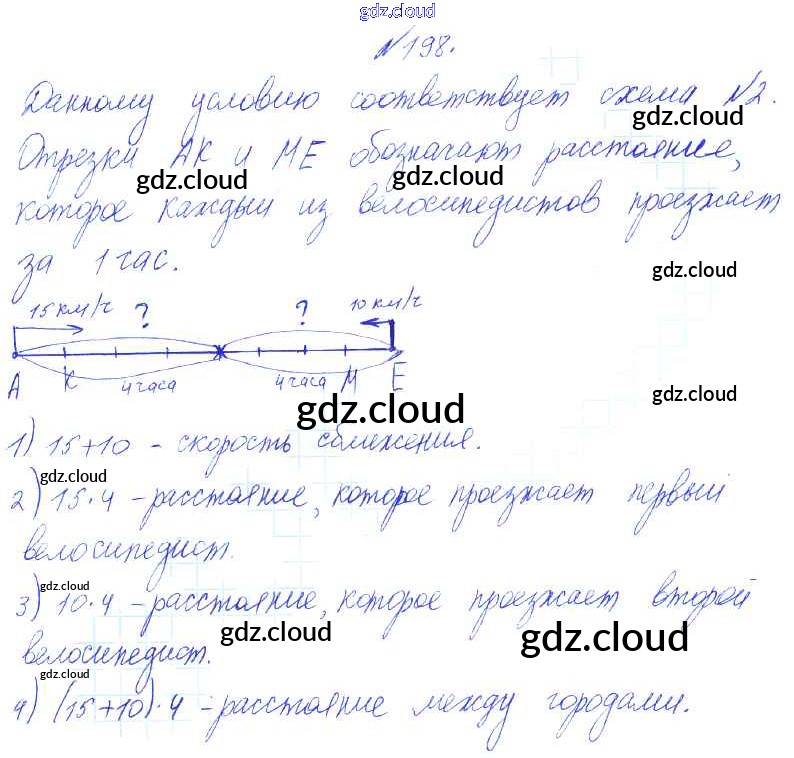 gdz.cloud
№198.
Данному условию соответствует схема №2.
gdz.cloud
Отрезки АК и МЕ обозначают расстояние,
gdz.cloud gdz.cloud
которое каждый из велосипедистов проезжает
за 1 час.
gdz.cloud
15 км/ч ? ? 10 км/ч
А К 4 часа 4 часа М Е
gdz.cloud
gdz.cloud
1) 15+10 - скорость сближения.
gdz.cloud
2) 15·4 - расстояние, которое проезжает первый
велосипедист.
gdz.cloud
3) 10·4 - расстояние, которое проезжает второй
gdz.cloud gdz.cloud
велосипедист.
gdz.cloud
4) (15+10)·4 - расстояние между городами.